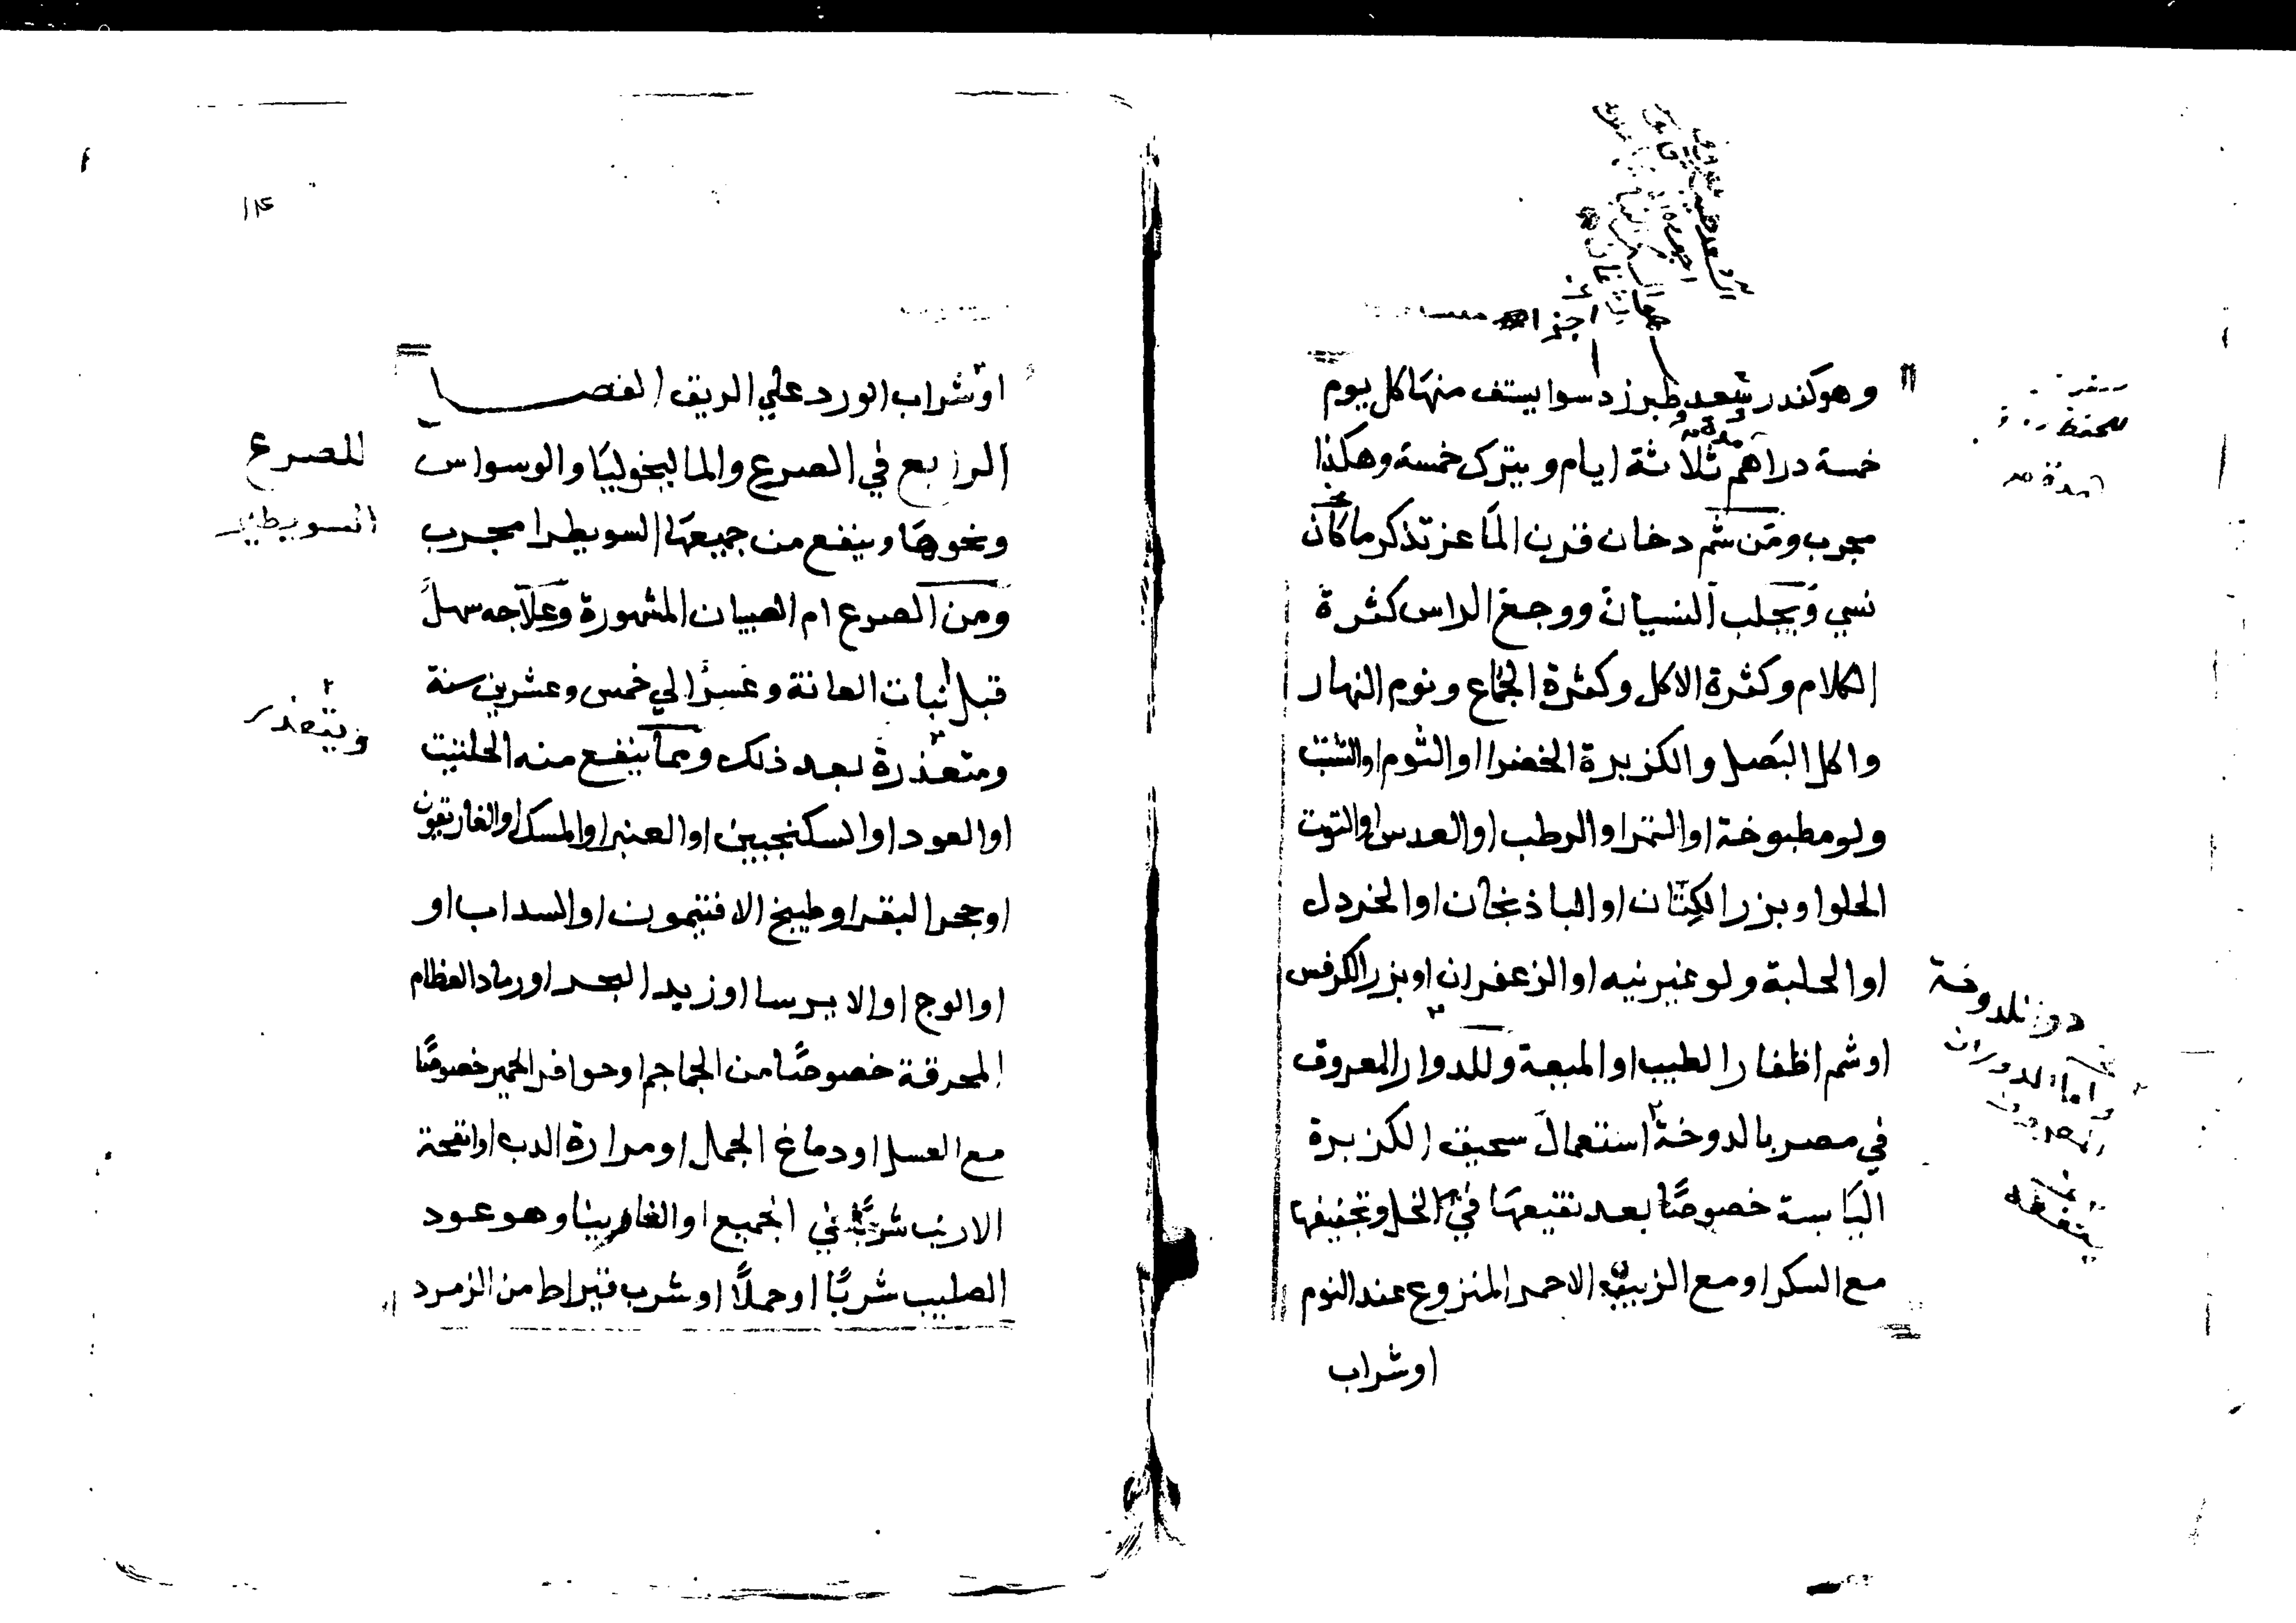 وهو كندر سعد طبرزد سوا يستف منها كل يوم
خمسة دراهم ثلاثة ايام ويترك خمسة وهكذا
مجرب ومن شم دخان قرن الماعز تذكر ما كان
نسي ويجلب النسيان ووجع الراس كثرة
الكلام وكثرة الاكل وكثرة الجماع ونوم النهار
واكل البصل والكزبرة الخضرا او الثوم او الشبت
ولو مطبوخة او التمر او الرطب او العدس او التوت
الحلو او بزر الكتان او الباذنجان او الخردل
او الحلبة ولو غير نيه او الزعفران او بزر الكرفس
او شم اظفار الطيب او الميعة وللدوار المعروف
في مصر بالدوخة استعمال سحيق الكزبرة
اليابسة خصوصًا بعد نقيعها في الخل وتجفيفها
مع السكر او مع الزبيب الاحمر المنزوع عند النوم
او شراب
اجزا
للحفظ
دوخة
اما الدوران
المعروف
١٤
او شراب الورد علي الريق الفصل
الرابع في الصرع والماليخوليا والوسواس
ونحوها وينفع من جميعها السويطرا مجرب
ومن الصرع ام الصبيان المشهورة وعلاجه سهل
قبل انبات العانة وعسرًا الي خمس وعشرين سنة
ومتعذرة بعد ذلك ومما ينفع منه الحلتيت
او العود او السكنجبين او العنبر او المسك او الغاريقون
او حجر البقر او طبيخ الافتيمون او السداب او
او الوج او الايرسا او زبد البحر او رماد العظام
المحرقة خصوصًا من الجماجم او حوافر الحمير خصوصًا
مع العسل او دماغ الجمل او مرارة الدب او انفحة
الارنب شربًا في الجميع او الفاوينيا وهو عود
الصليب شربًا او حملًا او شرب قيراط من الزمرد
للصرع
السويطر
ويتعذر